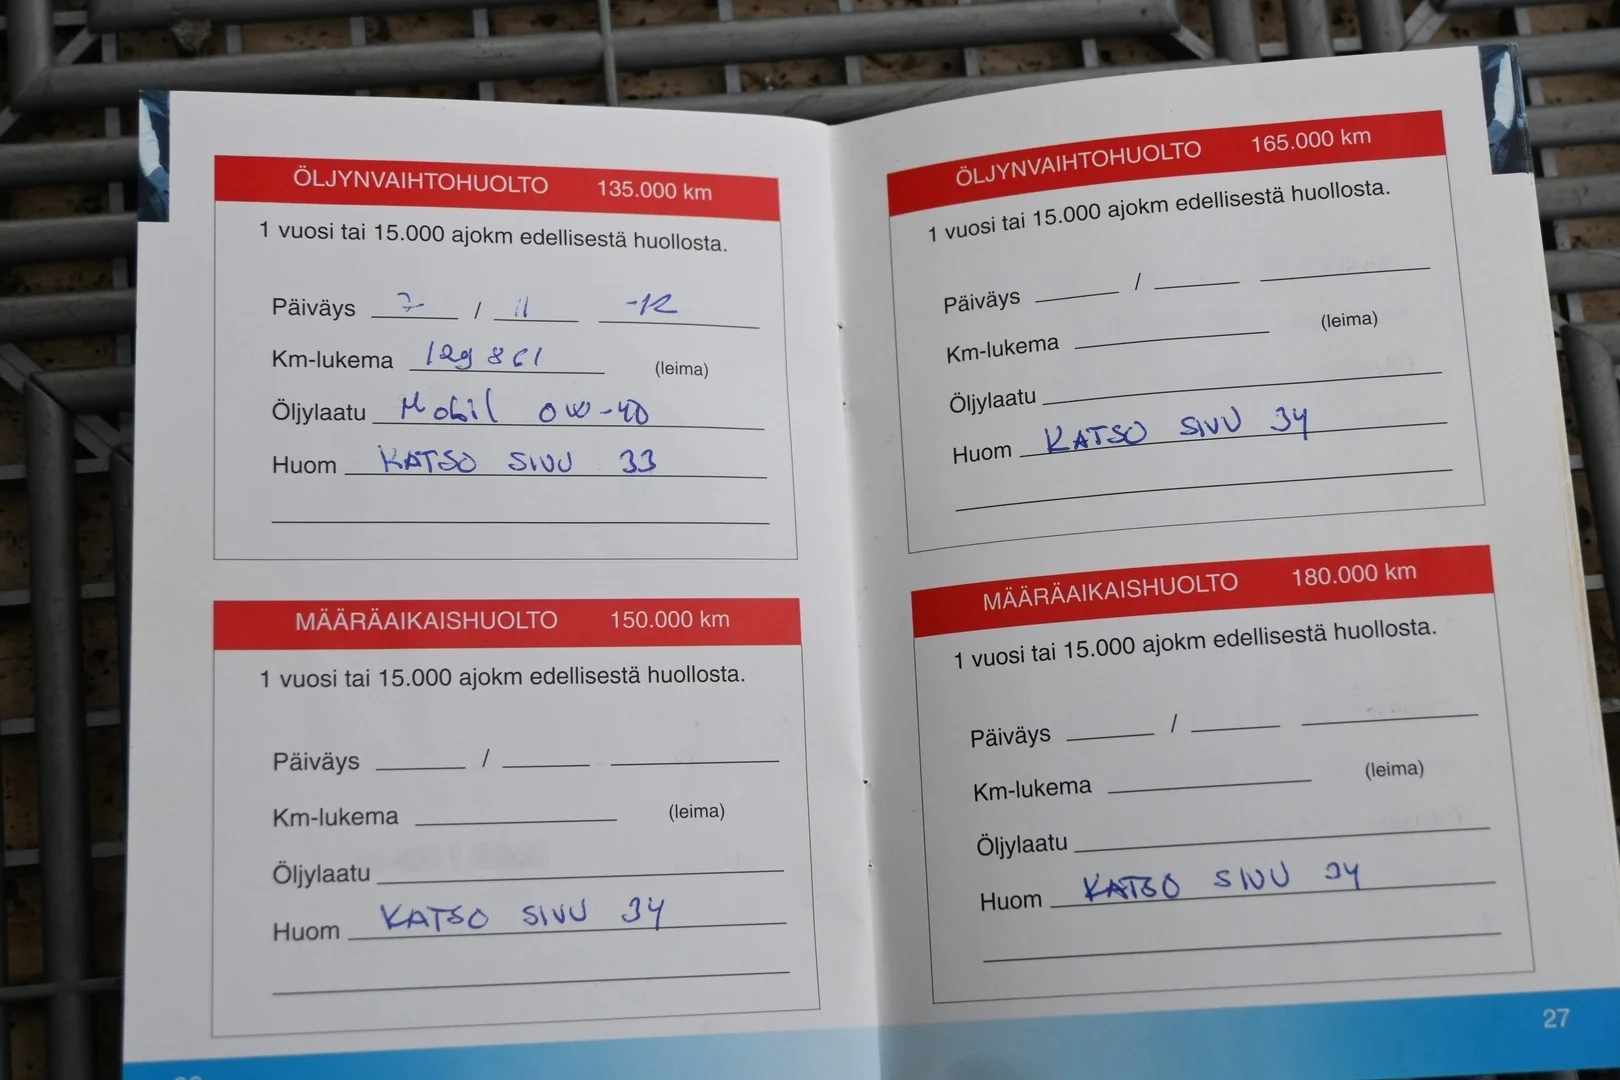 ÖLJYNVAIHTOHUOLTO 135.000 km
1 vuosi tai 15.000 ajokm edellisestä huollosta.
Päiväys 7 / 11 -12
Km-lukema 129 861 (leima)
Öljylaatu Mobil 0W-40
Huom KATSO SIVU 33
MÄÄRÄAIKAISHUOLTO 150.000 km
1 vuosi tai 15.000 ajokm edellisestä huollosta.
Päiväys /
Km-lukema (leima)
Öljylaatu
Huom KATSO SIVU 34
ÖLJYNVAIHTOHUOLTO 165.000 km
1 vuosi tai 15.000 ajokm edellisestä huollosta.
Päiväys /
Km-lukema (leima)
Öljylaatu
Huom KATSO SIVU 34
MÄÄRÄAIKAISHUOLTO 180.000 km
1 vuosi tai 15.000 ajokm edellisestä huollosta.
Päiväys /
Km-lukema (leima)
Öljylaatu
Huom KATSO SIVU 34
27